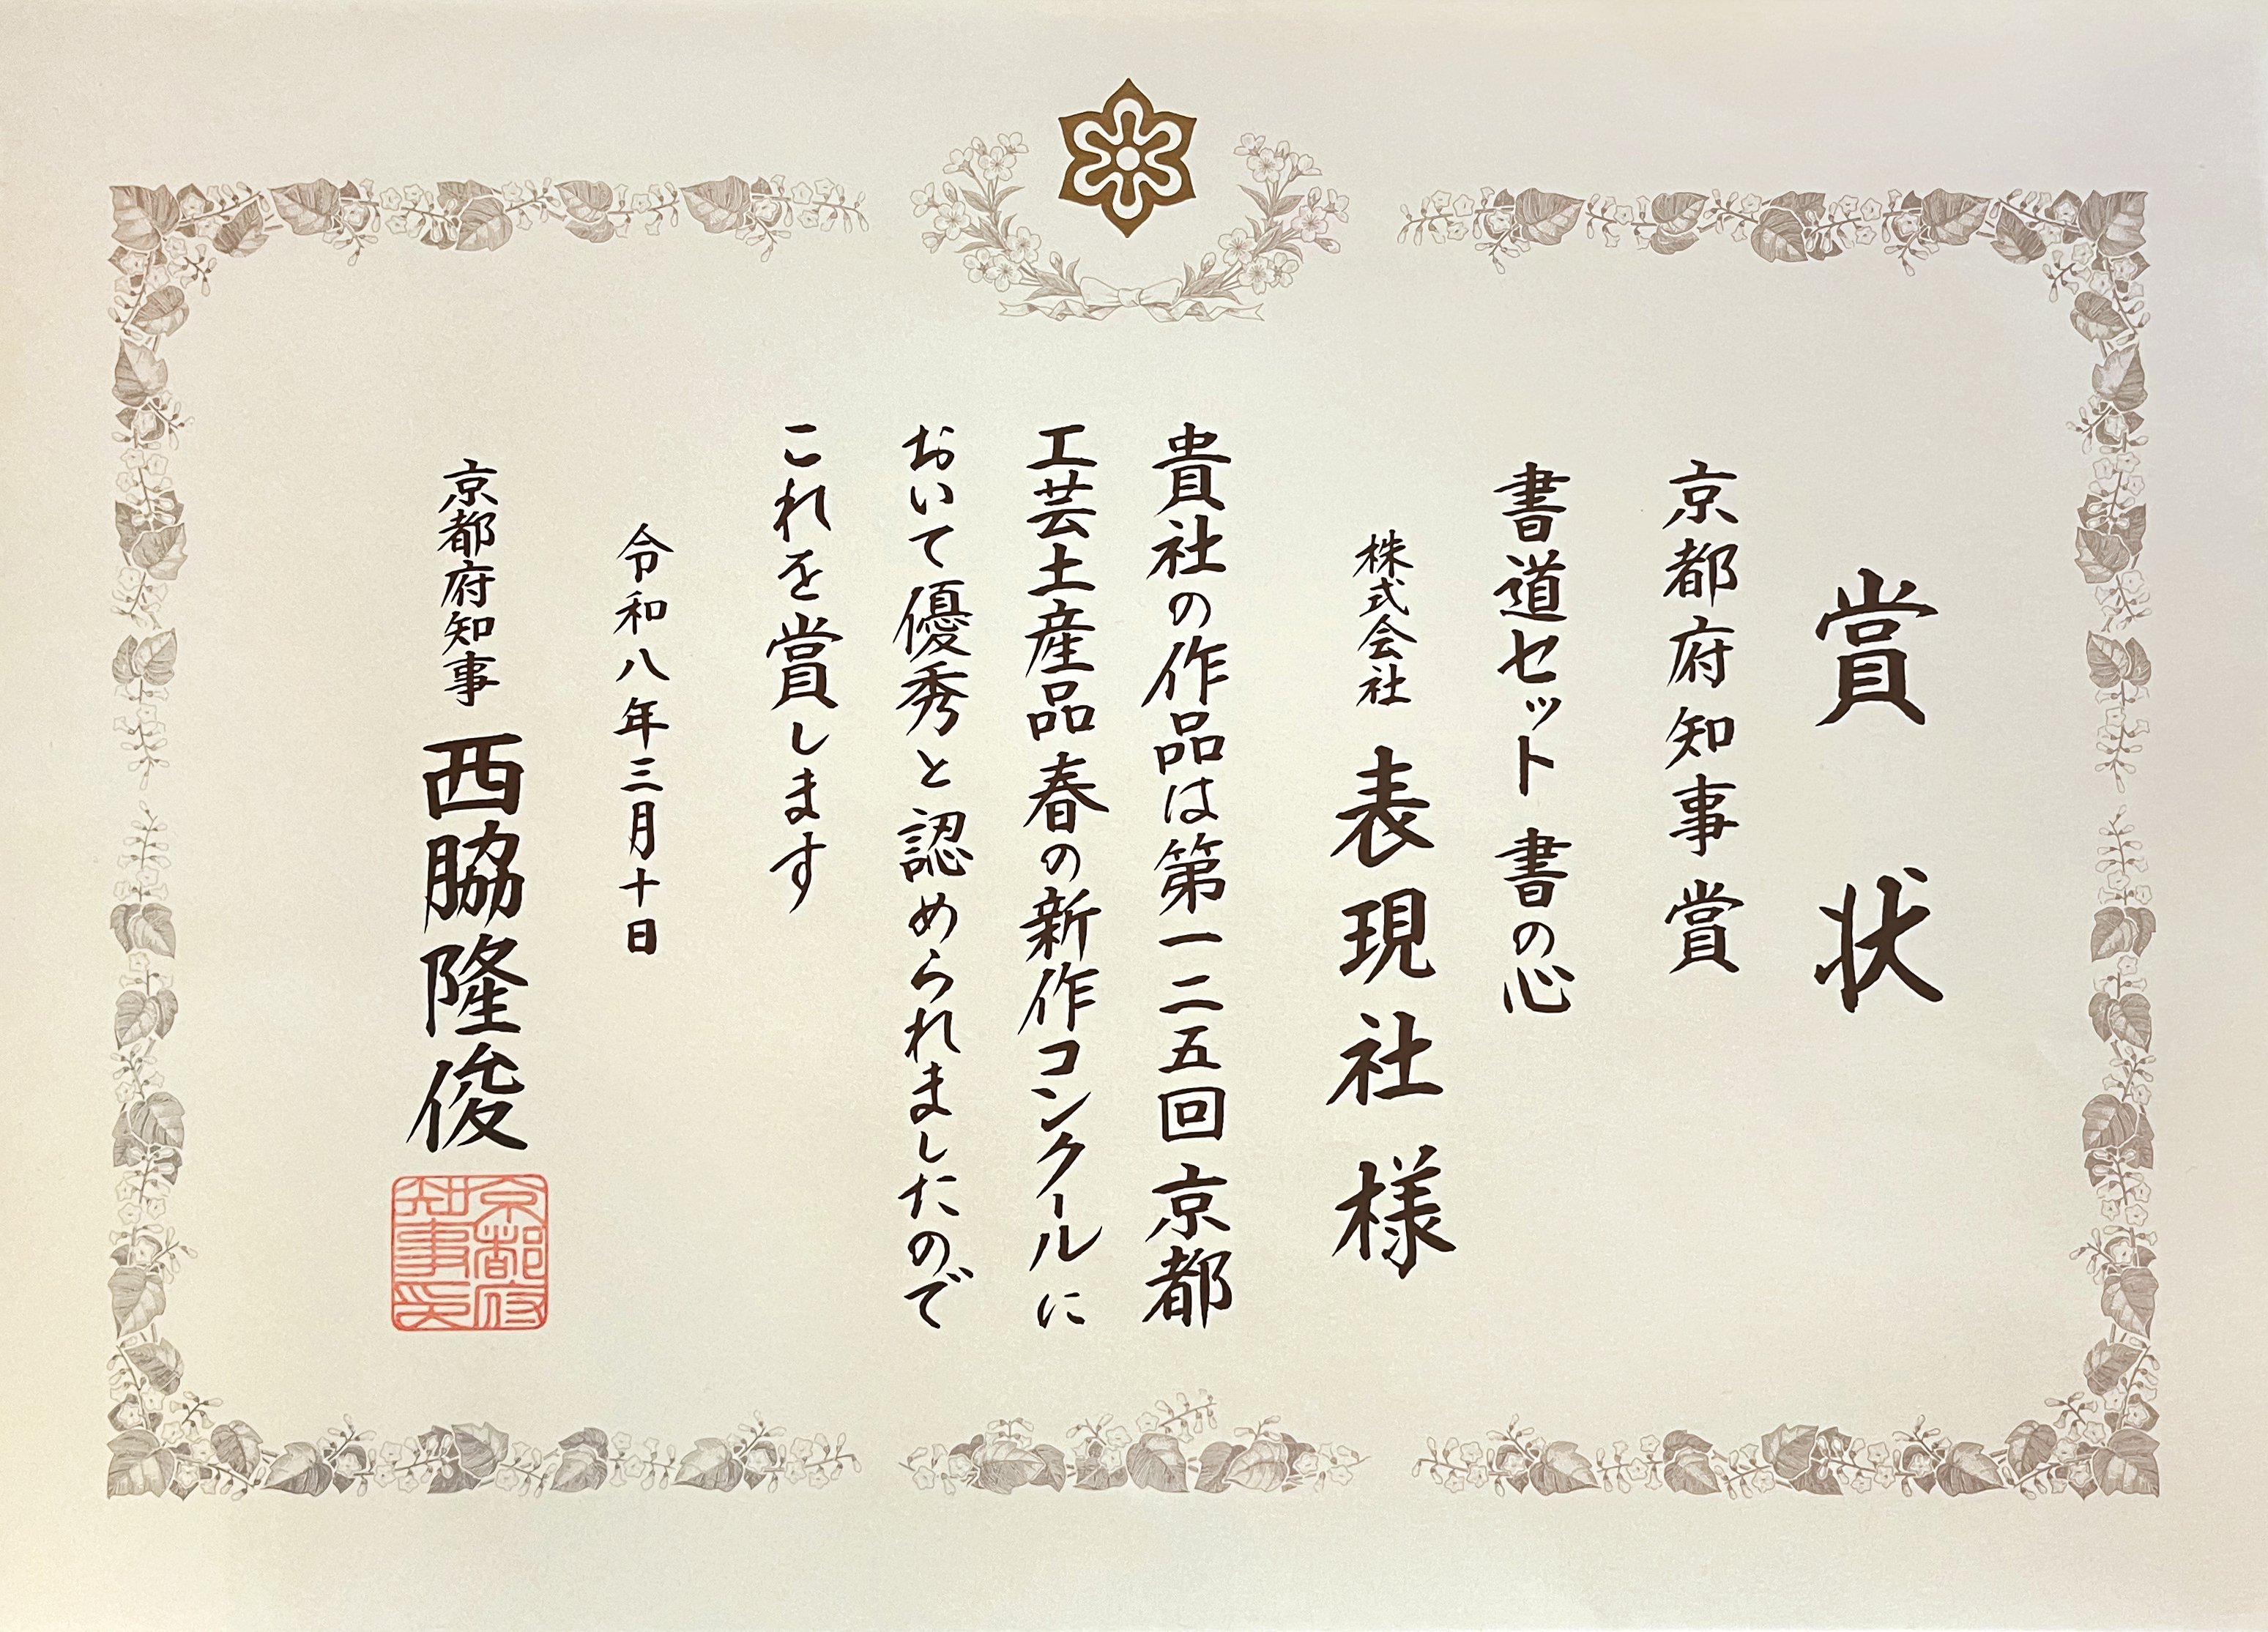 賞状
京都府知事賞
書道セット 書の心
株式会社 表現社 様
貴社の作品は第一二五回京都
工芸土産品春の新作コンクールに
おいて優秀と認められましたので
これを賞します
令和八年三月十日
京都府知事 西脇隆俊
京都府
知事印